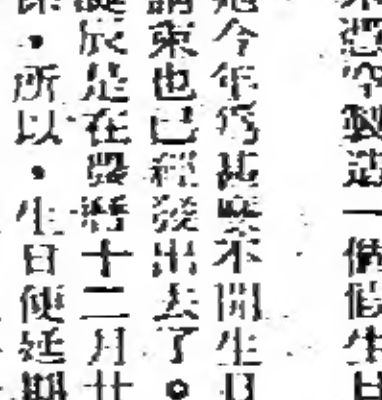 製造一個假生日
今年為甚麼不開生日
請柬也已經發出去了。
誕辰是在舊曆十二月廿
・所以・生日便延期